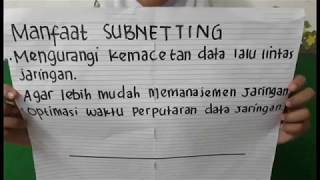 Manfaat SUBNETTING
• Mengurangi kemacetan data lalu lintas
jaringan.
• Agar lebih mudah memanajemen jaringan
• Optimasi waktu perputaran data jaringan